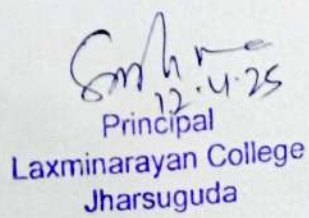 12.4.25
Principal
Laxminarayan College
Jharsuguda